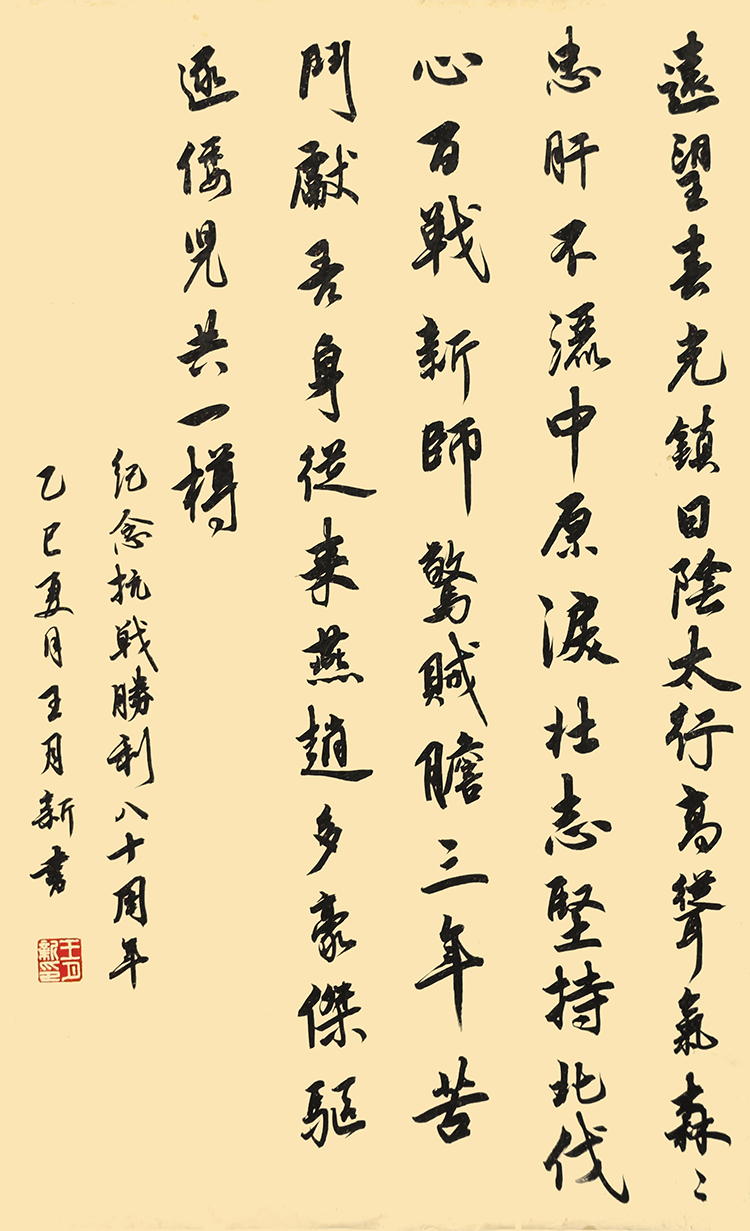 遠望春光鎮日陰太行高聳氣森々
忠肝不灑中原淚壯志堅持北伐
心百戰新師驚賊膽三年苦
鬥獻吾身從來燕趙多豪傑驅
逐倭児共一樽
紀念抗戰勝利八十周年
乙巳夏月王月新書
王月新印